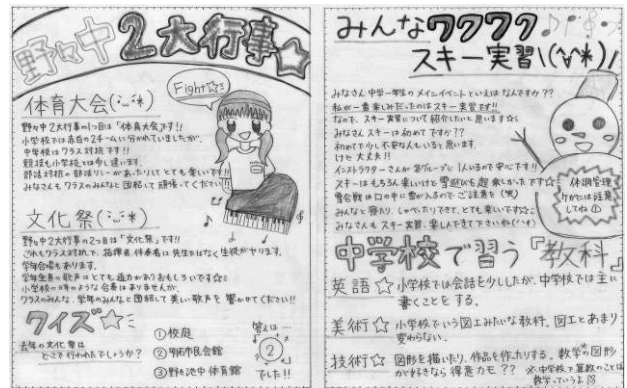 野々中2大行事☆
Fight☆ミ
体育大会(・᎑・*)
野々中2大行事の1つ目は「体育大会」です!!
小学校では赤白の2チームに分かれていましたが、
中学校はクラス対抗です!!
競技も小学校とは少し違います。
部活対抗の部活リレーがあったりしてとても楽しいです!!
みなさんもクラスのみんなと団結して頑張ってください!!
文化祭(・᎑・*)
野々中2大行事の2つ目は「文化祭」です!!
これもクラス対抗で、指揮者、伴奏者は先生ではなく生徒がやります。
学年合唱もあります。
学年全員の歌声はとても迫力がありおもしろいです☆ミ
小学校の時のような合奏はありませんが、
クラスのみんな、学年のみんなと団結して美しい歌声を響かせてください!!
クイズ☆ミ
去年の文化祭は
どこで行われたでしょうか?
①校庭
②明石市民会館
③野々池中体育館
答えは…
②
でした!!
みんなワクワク
スキー実習\(^∀^*)/
みなさん中学一年生のメインイベントといえばなんですか??
私が一番楽しみだったのはスキー実習です!!
なので、スキー実習について紹介したいと思います☆
みなさんスキーは初めてですか??
初めてで少し不安な人もいると思います。
けど大丈夫!!
インストラクターさんが各グループに1人いるので安心です!!
スキーはもちろん楽しいけど雪遊びも超楽しかったです☆ミ
雪合戦は口の中に雪が入るのでご注意を(笑)
みんなと寝たり、しゃべったりできて、とても楽しいです☆ミ
みなさんもスキー実習、楽しんできて下さいね(^-^)
体調管理
けがには注意
してね
中学校で習う『教科』
英語☆ 小学校では会話を少ししたが、中学校では主に
書くことをする。
美術☆ 小学校でいう図工みたいな教科。図工とあまり
変わらない。
技術☆ 図形を描いたり、作品を作ったりする。数学※の図形
が好きなら得意かも??
※中学校で算数のことは
数学っていうよ